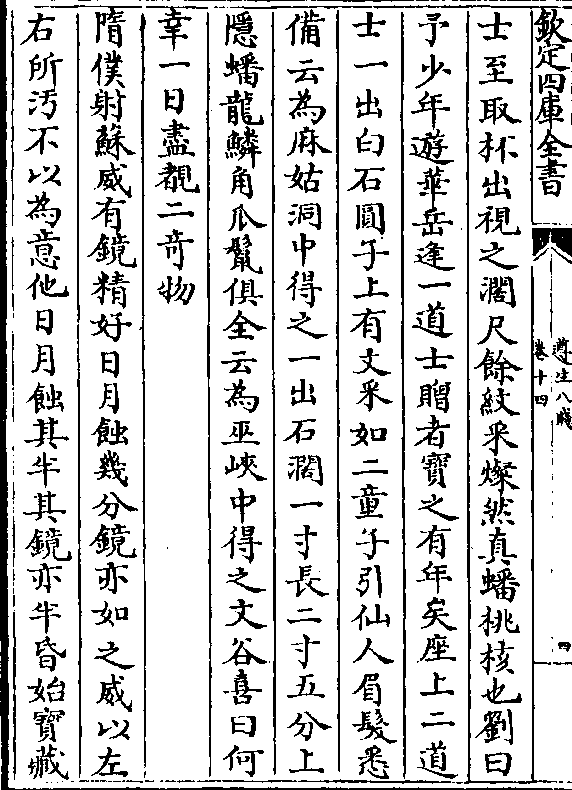 欽定四庫全書
遵生八牋
卷十四
四
士至取杯出視之濶尺餘紋采燦然真蟠桃核也劉曰
予少年遊華岳逢一道士贈者寶之有年矣座上二道
士一出白石圓子上有文采如二童子引仙人眉髮悉
備云為麻姑洞中得之一出石濶一寸長二寸五分上
隱蟠龍鱗角爪鬛俱全云為巫峽中得之文谷喜曰何
幸一日盡覩二奇物
隋僕射蘇威有鏡精好日月蝕幾分鏡亦如之威以左
右所汚不以為意他日月蝕其半其鏡亦半昏始寶藏